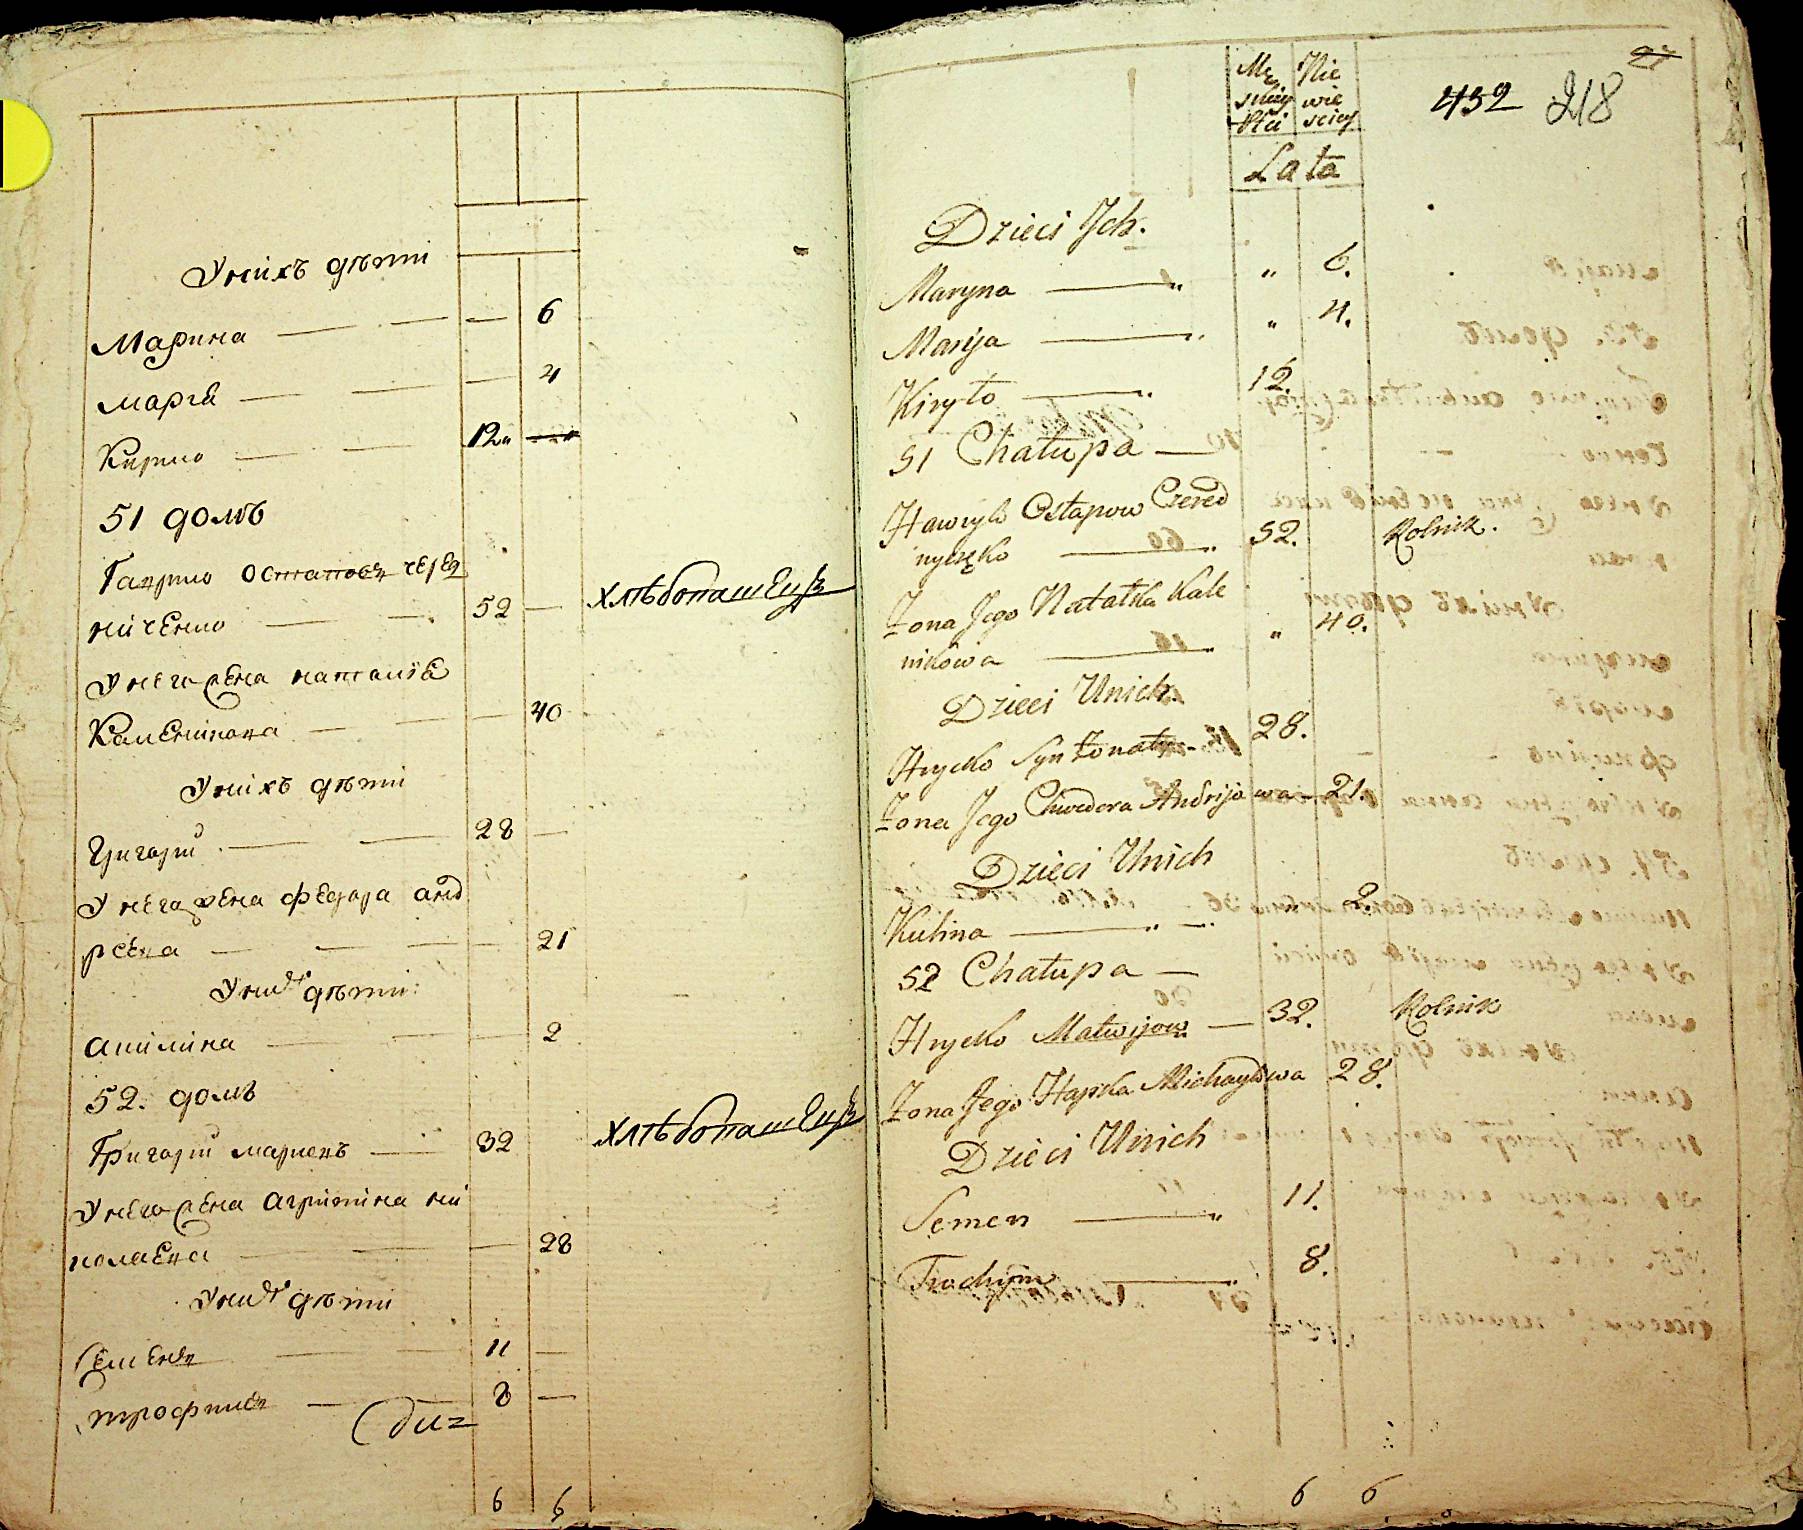 У нихъ дѣти
Марина — — — 6
Маря — — — 4
Кирило — — 12
51 домъ
Гаврило Остаповъ черед
ниченко — — 52 — хлѣбопашецъ
У него жена наталія
Калениkова — — — 40
У нихъ дѣти
Григорій — — 28 —
У него жена федора анд
реева — — — — 21
У них дѣти:
акилина — — — 2
52. домъ
Григорій — 32 хлѣбопашецъ
У него жена агрипина ни
колаева — — — 28
У них дѣти
Семенъ — — 11 —
трофимъ — 8 —
6 6
27
Mę Nie
skiey wie
Płci sciey
432 218
Lata
Dzieci Ich.
Maryna — „ „ 6.
Marija — „ „ 4.
Kiryło — „ 12.
51 Chałupa —
Hawryło Ostapow Czered
nyczęko — „ 52. Rolnik.
Żona Jego Natałka Kale
nikowa — „ „ 40.
Dzieci Unich
Hrycko Syn Żonaty — 28.
Żona Jego Chwedora Andrijowa — 21.
Dzieci Unich
Kulina — „ — „ 2.
52 Chałupa —
Hrycko Matwijow — 32. Rolnik
Żona Jego Hapka Michayłowa 28.
Dzieci Unich
Semen — „ 11.
Trochym — „ 8.
6 6